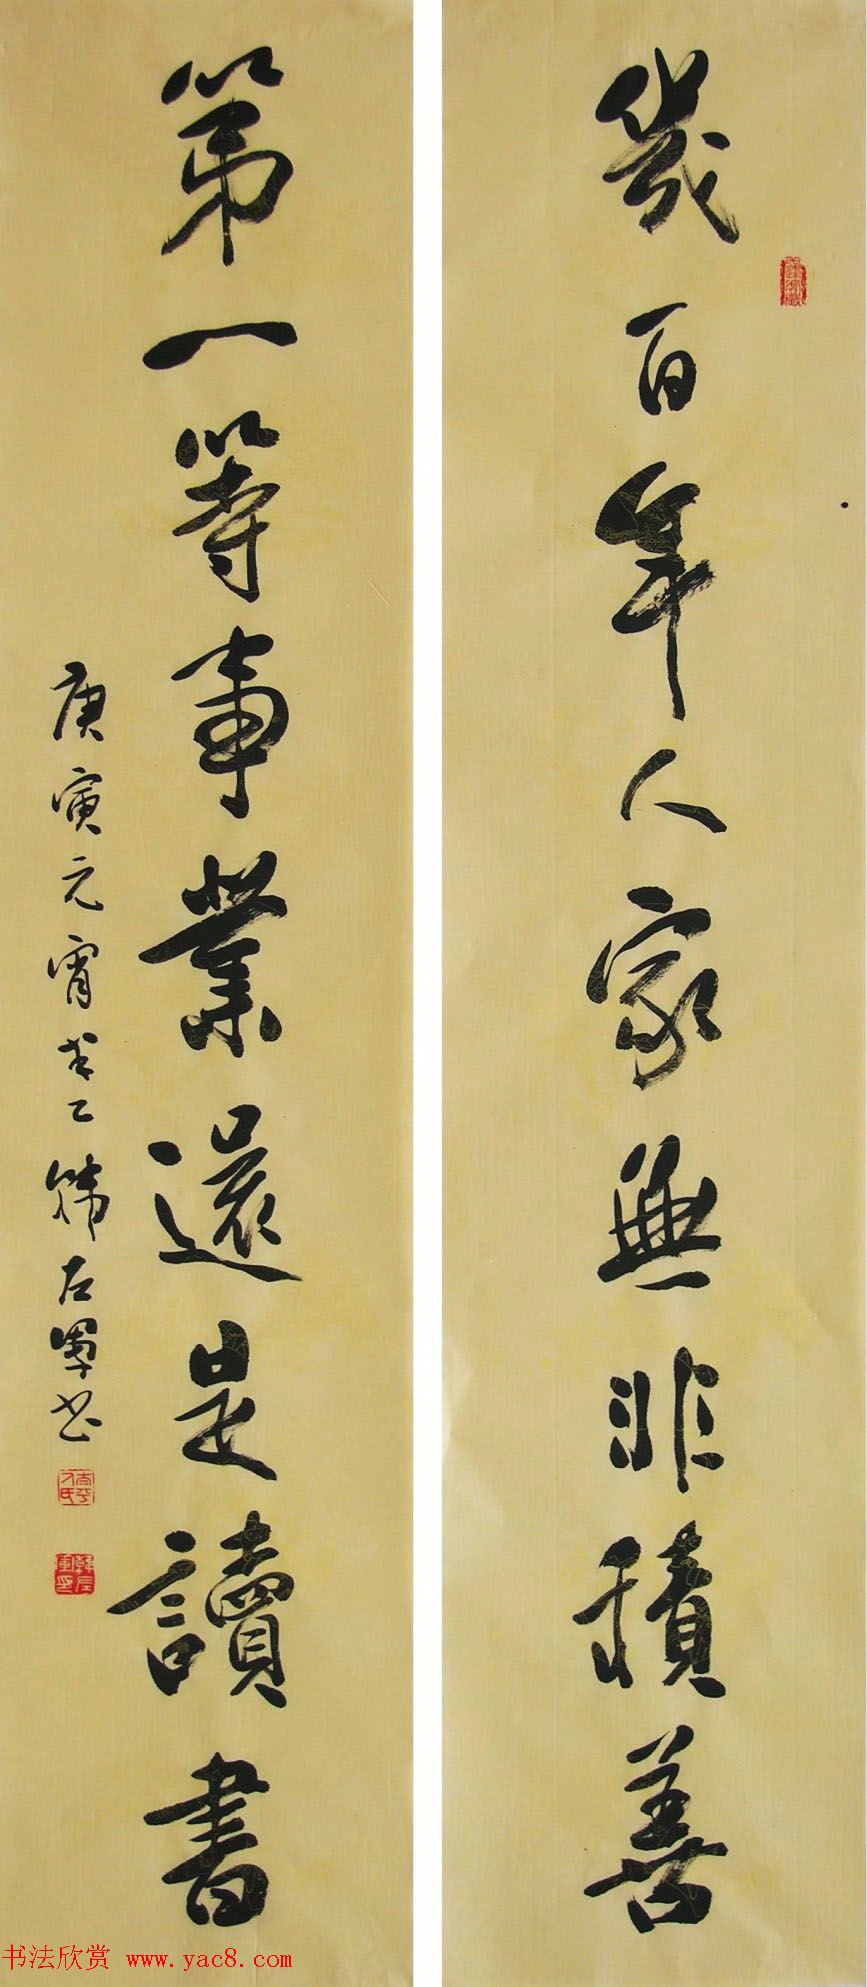 幾百年人家無非積善
第一等事業還是讀書
庚寅元宵於乙韩左軍书
书法欣赏 www.yac8.com